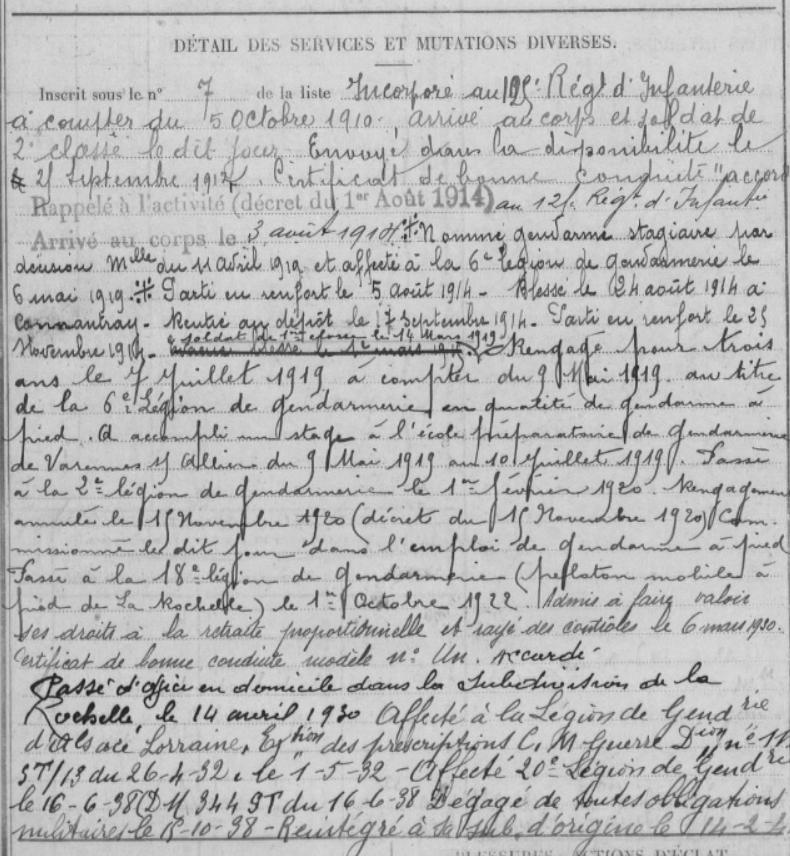 DÉTAIL DES SERVICES ET MUTATIONS DIVERSES.
Inscrit sous le n° 7 de la liste Incorporé au 125e Régt d'Infanterie
à compter du 5 Octobre 1910. arrivé au corps et soldat de
2e classe le dit jour. Envoyé dans la disponibilité le
25 Septembre 1912. Certificat de bonne conduite "accord
Rappelé à l'activité (décret du 1er Août 1914) au 125e Régt d'Infantie
Arrivé au corps le 3 août 1914. Nommé gendarme stagiaire par
décision Mlle du 11 avril 1919 et affecté à la 6e légion de gendarmerie le
6 mai 1919. Parti en renfort le 5 août 1914 - Blessé le 24 août 1914 à
Connantray - Rentré au dépôt le 17 Septembre 1914. Parti en renfort le 25
soldat de 1ère classe le 14 Mars 1919
Novembre 1914 - Rengagé pour trois
ans le 7 Juillet 1919 à compter du 9 Mai 1919 au titre
de la 6e Légion de gendarmerie en qualité de gendarme à
pied. A accompli un stage à l'école préparatoire de gendarmerie
de Varennes s/ Allier du 9 Mai 1919 au 10 Juillet 1919. Passé
à la 2e légion de gendarmerie le 1er février 1920. Rengagement
annulé le 15 Novembre 1920 (décret du 15 Novembre 1920) Com-
missionné le dit jour dans l'emploi de gendarme à pied
Passé à la 18e légion de gendarmerie (peloton mobile à
pied de La Rochelle) le 1er Octobre 1922. Admis à faire valoir
ses droits à la retraite proportionnelle et rayé des contrôles le 6 mars 1930.
Certificat de bonne conduite modèle n° Un. accordé
Passé d'office en domicile dans la Subdivision de la
Rochelle, le 14 avril 1930 Affecté à la Légion de Gendrie
d'Alsace Lorraine, Extion des prescriptions C. M Guerre Dion n° 11
ST/13 du 26-4-32, le 1-5-32 - Affecté 20e Légion de Gendrie
le 16-6-38 (DM 344 ST du 16-6-38 Dégagé de toutes obligations
militaires le 15-10-38 - Réintégré à sa sub. d'origine le 14-2-4
BLESSURES, ACTIONS D'ÉCLAT